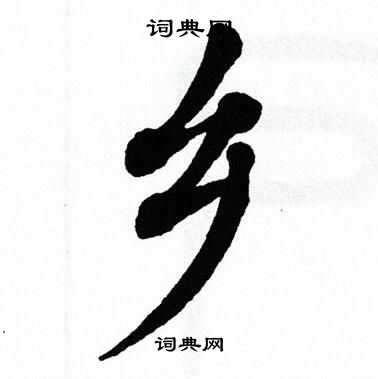 词典网
乡
词典网